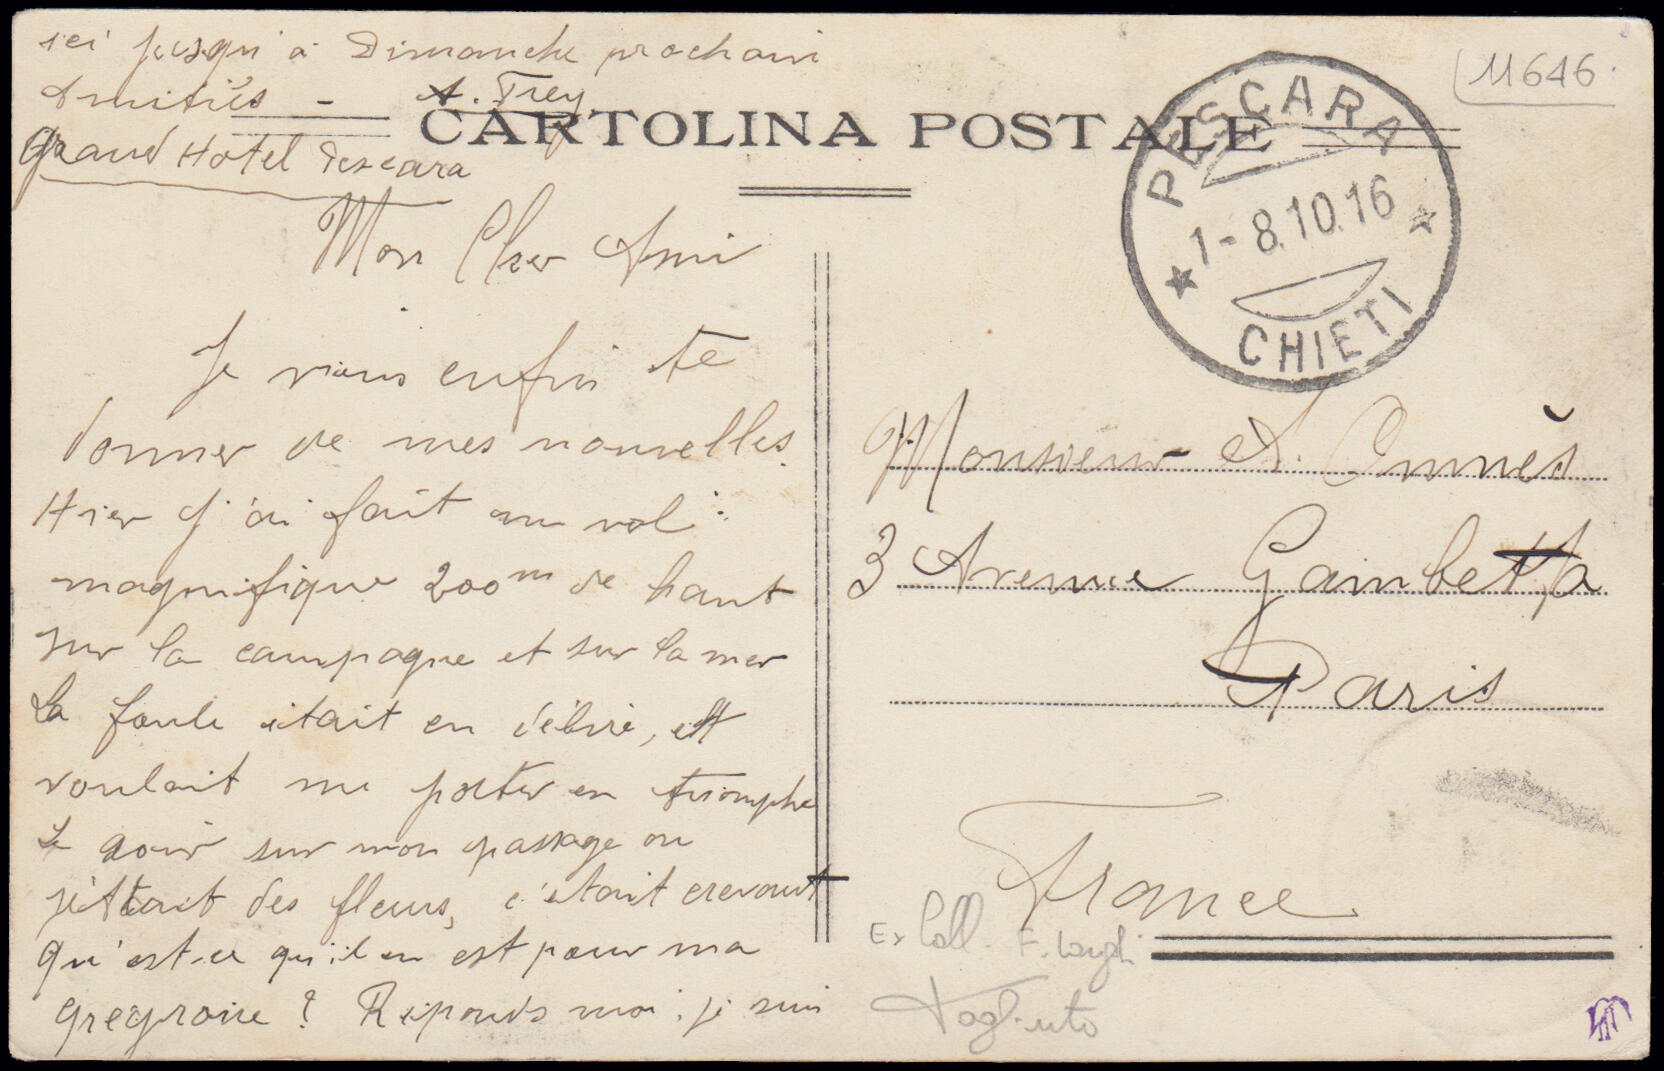 ici jusqu'à Dimanche prochain
Amitiés - A. Frey
Grand Hotel Pescara
CARTOLINA POSTALE
11646
PESCARA
1-8.10.16
CHIETI
Mon Cher Ami
Je viens enfin te
donner de mes nouvelles.
Hier j'ai fait un vol
magnifique 200m de haut
sur la campagne et sur la mer
La foule était en délire, et
voulait me porter en triomphe
Le soir sur mon passage on
jettait des fleurs, c'était crevant
qu'est-ce qu'il en est pour ma
Réponds moi, je suis
Monsieur A. Omnès
3 Avenue Gambetta
Paris
France
Ex Coll. F.
Tagliato